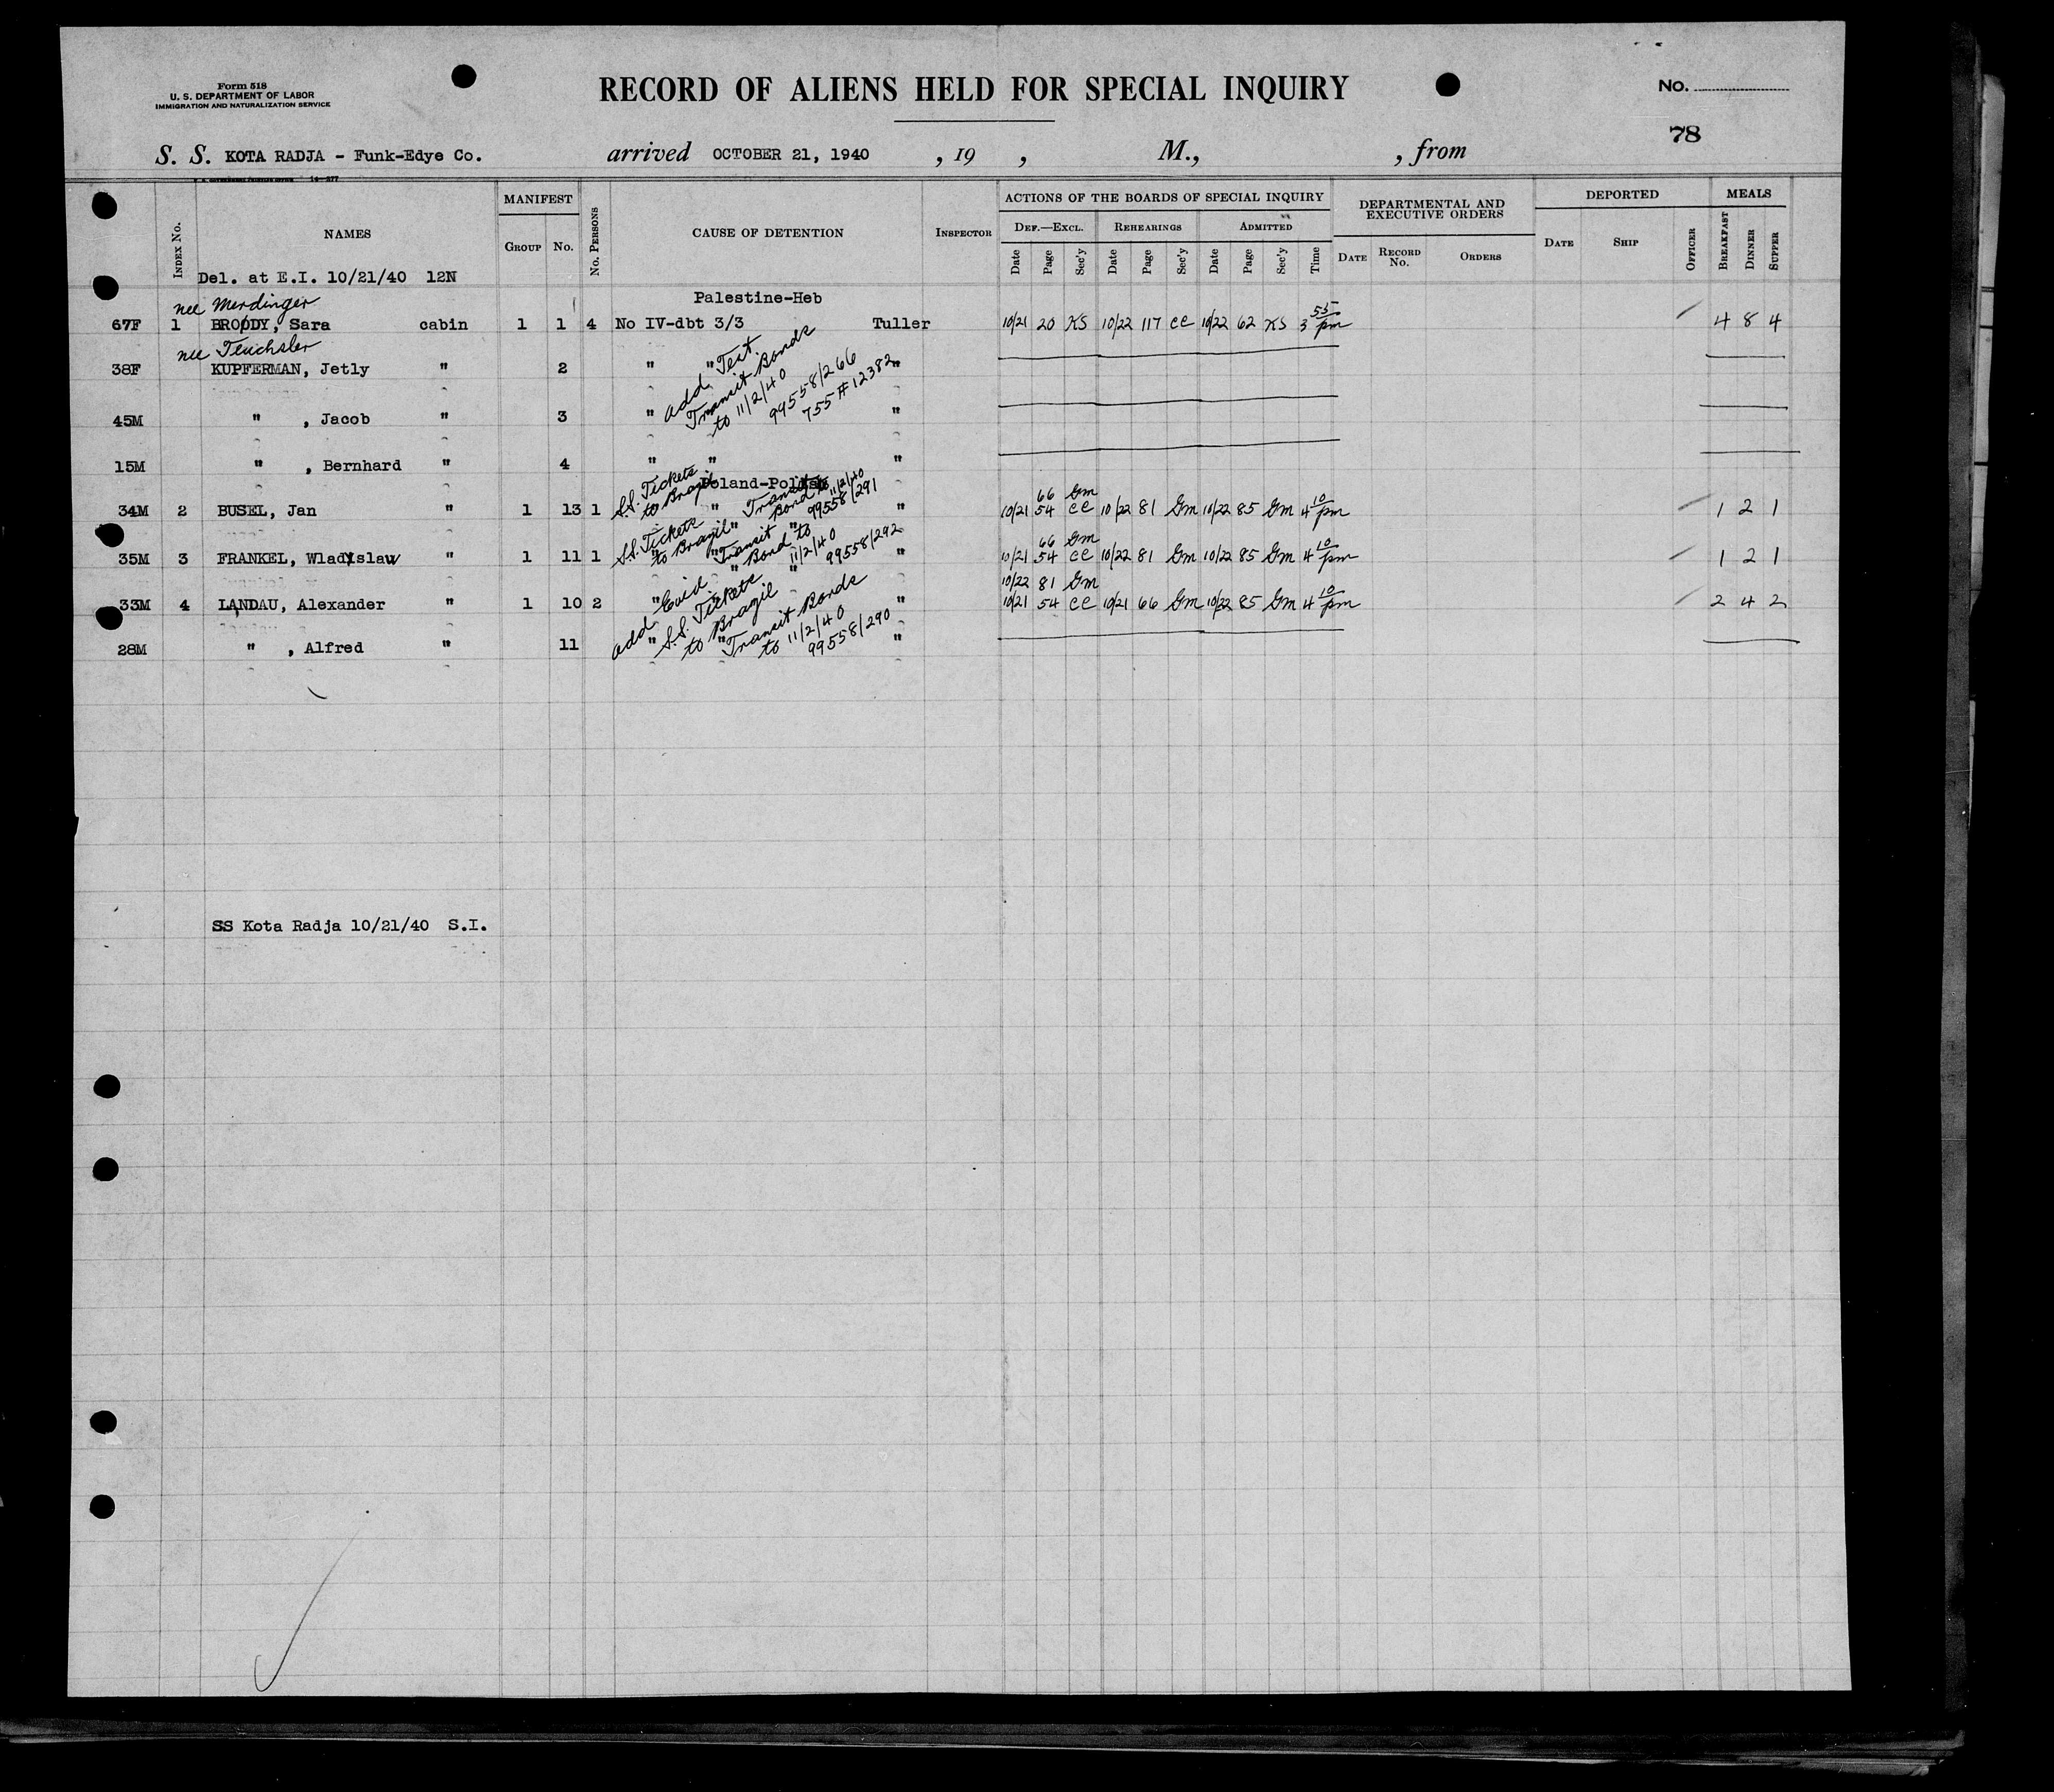 Form 518
U. S. DEPARTMENT OF LABOR
IMMIGRATION AND NATURALIZATION SERVICE
RECORD OF ALIENS HELD FOR SPECIAL INQUIRY
No.
78
S. S. KOTA RADJA - Funk-Edye Co. arrived OCTOBER 21, 1940 , 19 , M., , from
INDEX No. NAMES MANIFEST GROUP No. No. PERSONS CAUSE OF DETENTION INSPECTOR
ACTIONS OF THE BOARDS OF SPECIAL INQUIRY
DEF.—EXCL. REHEARINGS ADMITTED
Date Page Sec'y Date Page Sec'y Date Page Sec'y Time
DEPARTMENTAL AND EXECUTIVE ORDERS
DATE RECORD No. ORDERS
DEPORTED
DATE SHIP OFFICER
MEALS
BREAKFAST DINNER SUPPER
Del. at E.I. 10/21/40 12N
nee Merdinger Palestine-Heb
67F 1 BRODY, Sara cabin 1 1 4 No IV-dbt 3/3 Tuller 10/21 20 KS 10/22 117 CC 10/22 62 KS 3 55 pm 4 8 4
nee Teuchsler
38F KUPFERMAN, Jetly " 2 " " "
add. Test.
Transit Bonds
to 11/2/40
99558/266
755 # 12382
45M " , Jacob " 3 " "
15M " , Bernhard " 4 " " "
Poland-Polish
34M 2 BUSEL, Jan " 1 13 1 " " 10/21 54 CC 66 Gm 10/22 81 Gm 10/22 85 Gm 4 10 pm 1 2 1
S.S. Tickets
to Brazil
Transit
Bond to 11/2/40
99558/291
35M 3 FRANKEL, Wladyslaw " 1 11 1 " " " 10/21 54 CC 66 Gm 10/22 81 Gm 10/22 85 Gm 4 10 pm 1 2 1
S.S. Tickets
to Brazil
Transit
Bond to
11/2/40
99558/292
10/22 81 Gm
33M 4 LANDAU, Alexander " 1 10 2 " " " 10/21 54 CC 10/21 66 Gm 10/22 85 Gm 4 10 pm 2 4 2
add. Evid
S.S. Tickets
to Brazil
Transit Bonds
to 11/2/40
99558/290
28M " , Alfred " 11 " " "
SS Kota Radja 10/21/40 S.I.